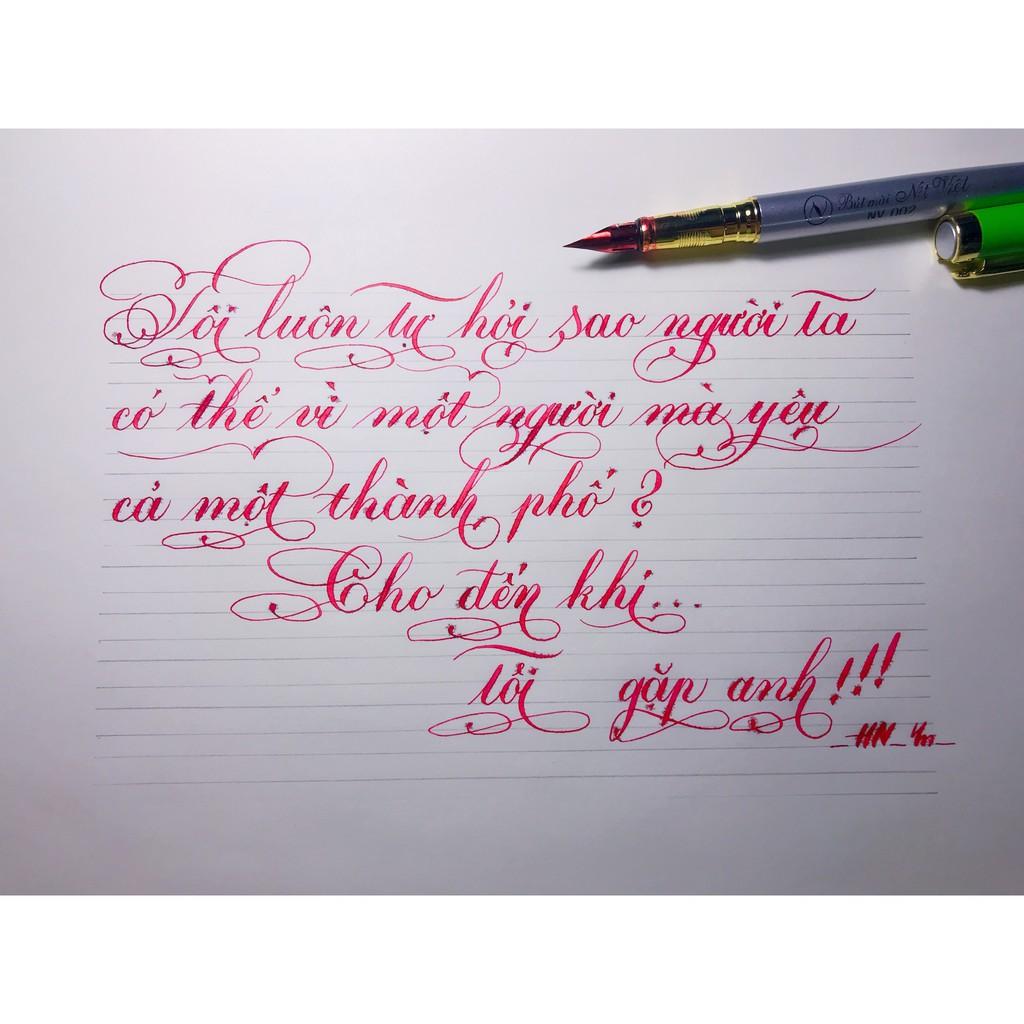 Bút mài Nét Việt
NV 002
Tôi luôn tự hỏi sao người ta
có thể vì một người mà yêu
cả một thành phố ?
Cho đến khi...
tôi gặp anh!!!
_HN_